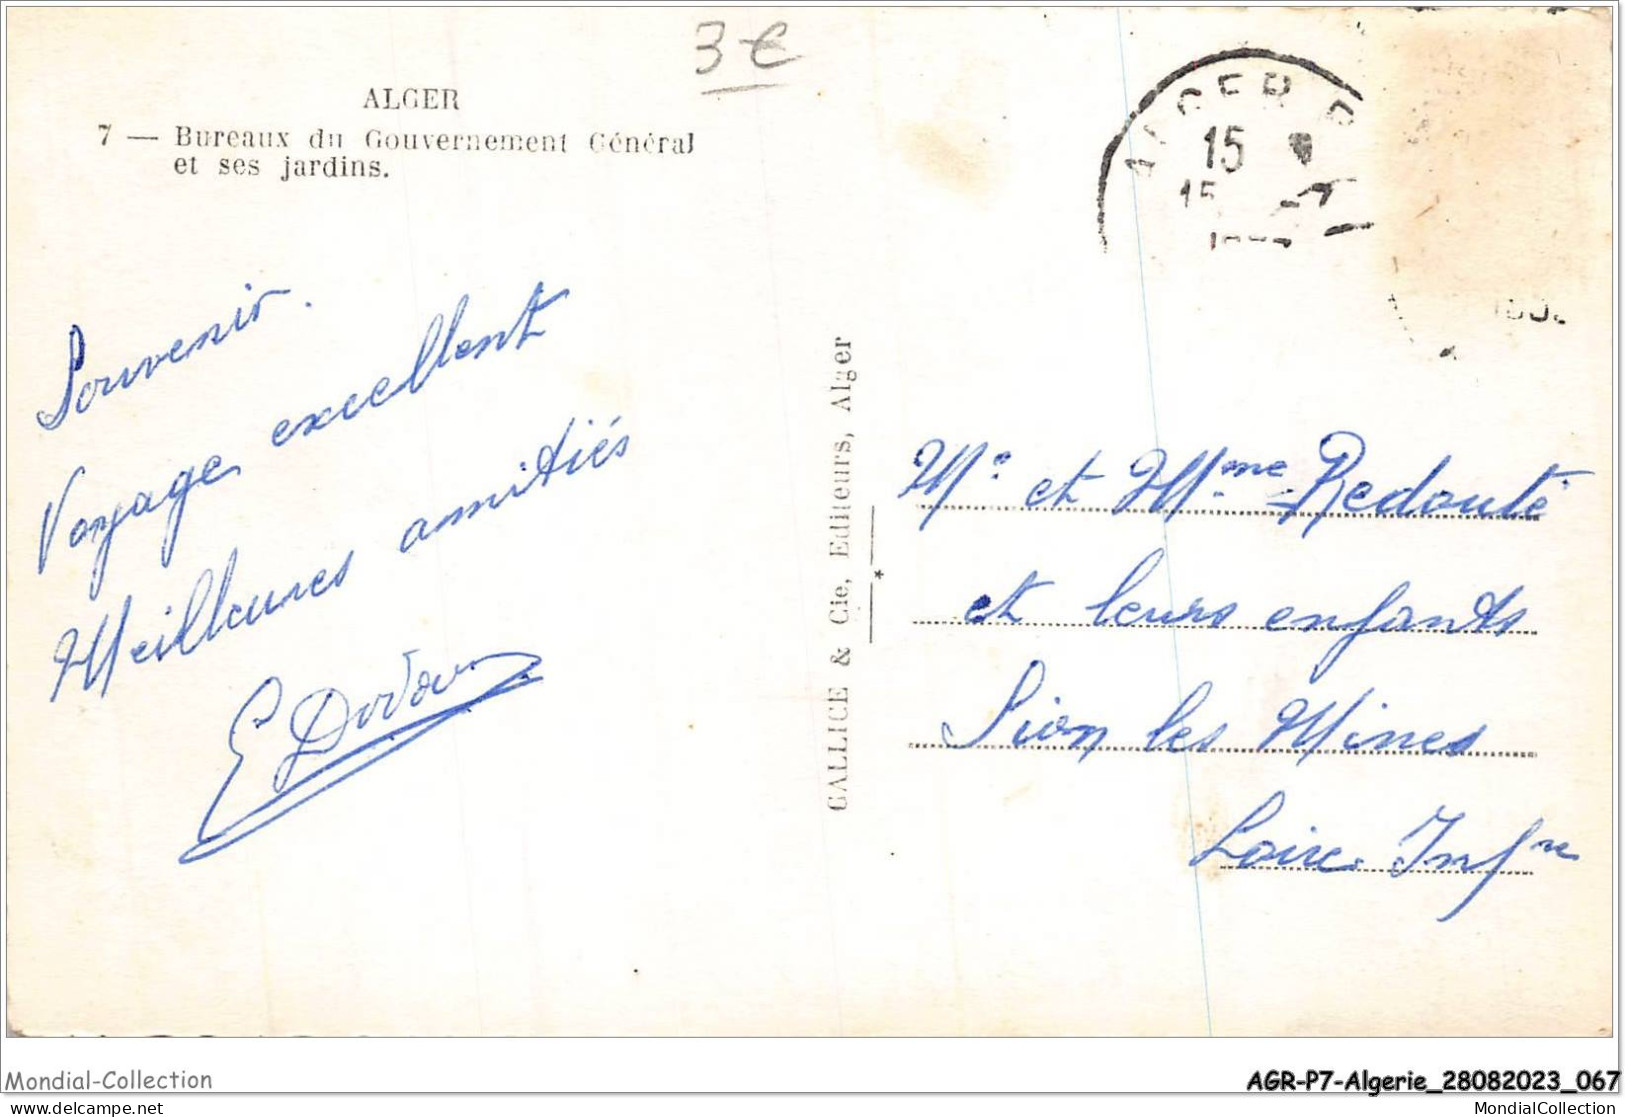 3€
ALGER
7 — Bureaux du Gouvernement Général
et ses jardins.
ALGER
15
15
Souvenir.
Voyage excellent
Meilleures amitiés
GALLICE & Cie, Editeurs, Alger
Mr et Mme Redouté
et leurs enfants
Sion les Mines
Loire Infre
Mondial-Collection
AGR-P7-Algerie_28082023_067
www.delcampe.net
MondialCollection